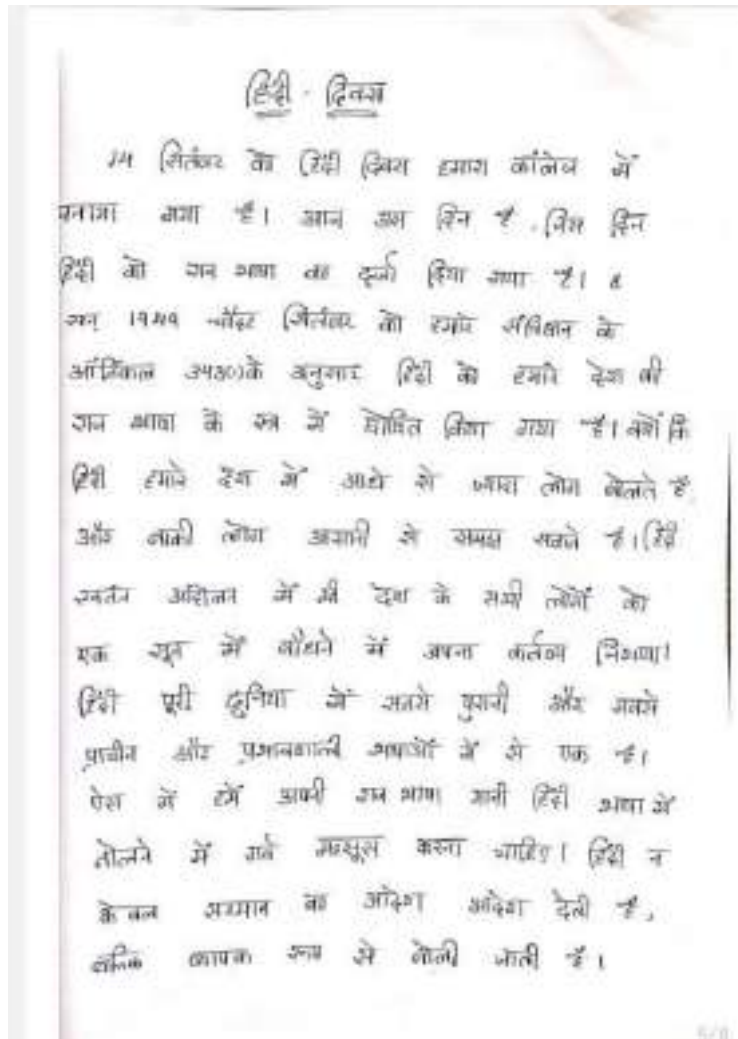 हिंदी - दिवस
14 सितंबर को हिंदी दिवस हमारा कॉलेज में
मनाया गया है। आज उस दिन है, जिस दिन
हिंदी को राज भाषा का दर्जा दिया गया है।
सन् 1949 चौदह सितंबर को हमारे संविधान के
आर्टिकल के अनुसार हिंदी को हमारे देश की
राज भाषा के रूप में घोषित किया गया है। क्यों कि
हिंदी हमारे देश में आधे से ज्यादा लोग बोलते है
और बाकी लोग आसानी से समझ सकते है। हिंदी
में भी देश के सभी लोगों को
एक सूत्र में बाँधने में अपना कर्तव्य निभाया।
हिंदी पूरी दुनिया में सबसे पुरानी और सबसे
प्राचीन और प्रभावशाली भाषाओं में से एक है।
ऐस में हमें अपनी राज भाषा यानी हिंदी भाषा में
बोलने में गर्व महसूस करना चाहिए। हिंदी न
केवल सम्मान का आदेश आदेश देती है,
बल्कि व्यापक रूप से बोली जाती है।